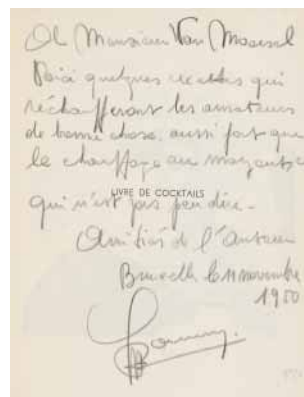 A Monsieur Van Moorsel
Voici quelques recettes qui
réchaufferont les amateurs
de bonne chose, aussi fort que
le chauffage au mazout
LIVRE DE COCKTAILS
qui n'est pas peu dire -
Amitiés de l'auteur
Bruxelles le 11 novembre
1950